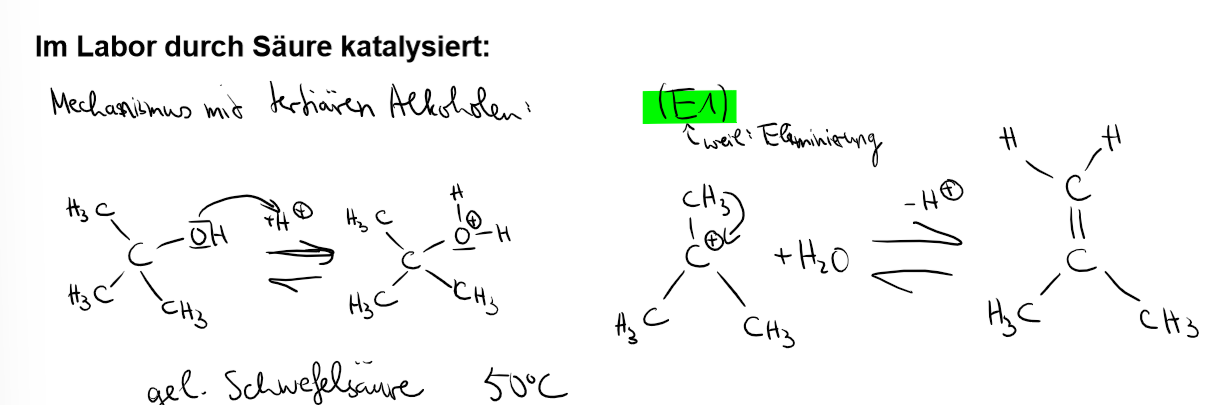 Im Labor durch Säure katalysiert:
Mechanismus mit tertiären Alkoholen:
(E1)
weil: Eliminierung
H₃C
OH
C
H₃C
CH₃
+H⊕
H
H₃C
O⊕–H
C
H₃C
CH₃
CH₃
C⊕
H₃C
CH₃
+H₂O
-H⊕
H
H
C
C
H₃C
CH₃
gel. Schwefelsäure 50°C